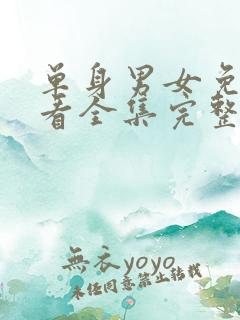 单身男女免
看全集完整
無衣yoyo
未经同意禁止转载